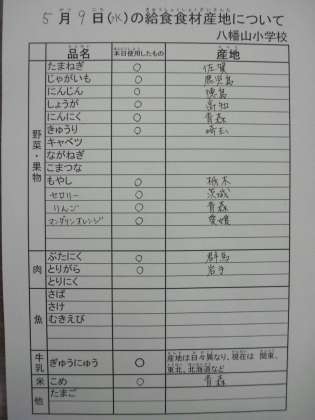 5月9日(水)の給食食材産地について
八幡山小学校
品名 本日使用したもの 産地
野菜・果物
たまねぎ ○ 佐賀
じゃがいも ○ 鹿児島
にんじん ○ 徳島
しょうが ○ 高知
にんにく ○ 青森
きゅうり ○ 埼玉
キャベツ
ながねぎ
こまつな
もやし ○ 栃木
セロリー ○ 茨城
りんご ○ 青森
マンダリンオレンジ ○ 愛媛
肉
ぶたにく ○ 群馬
とりがら ○ 岩手
とりにく
魚
さば
さけ
むきえび
牛乳 ぎゅうにゅう ○ 産地は日々異なり、現在は 関東、
東北、北海道など
米 こめ ○ 青森
他 たまご